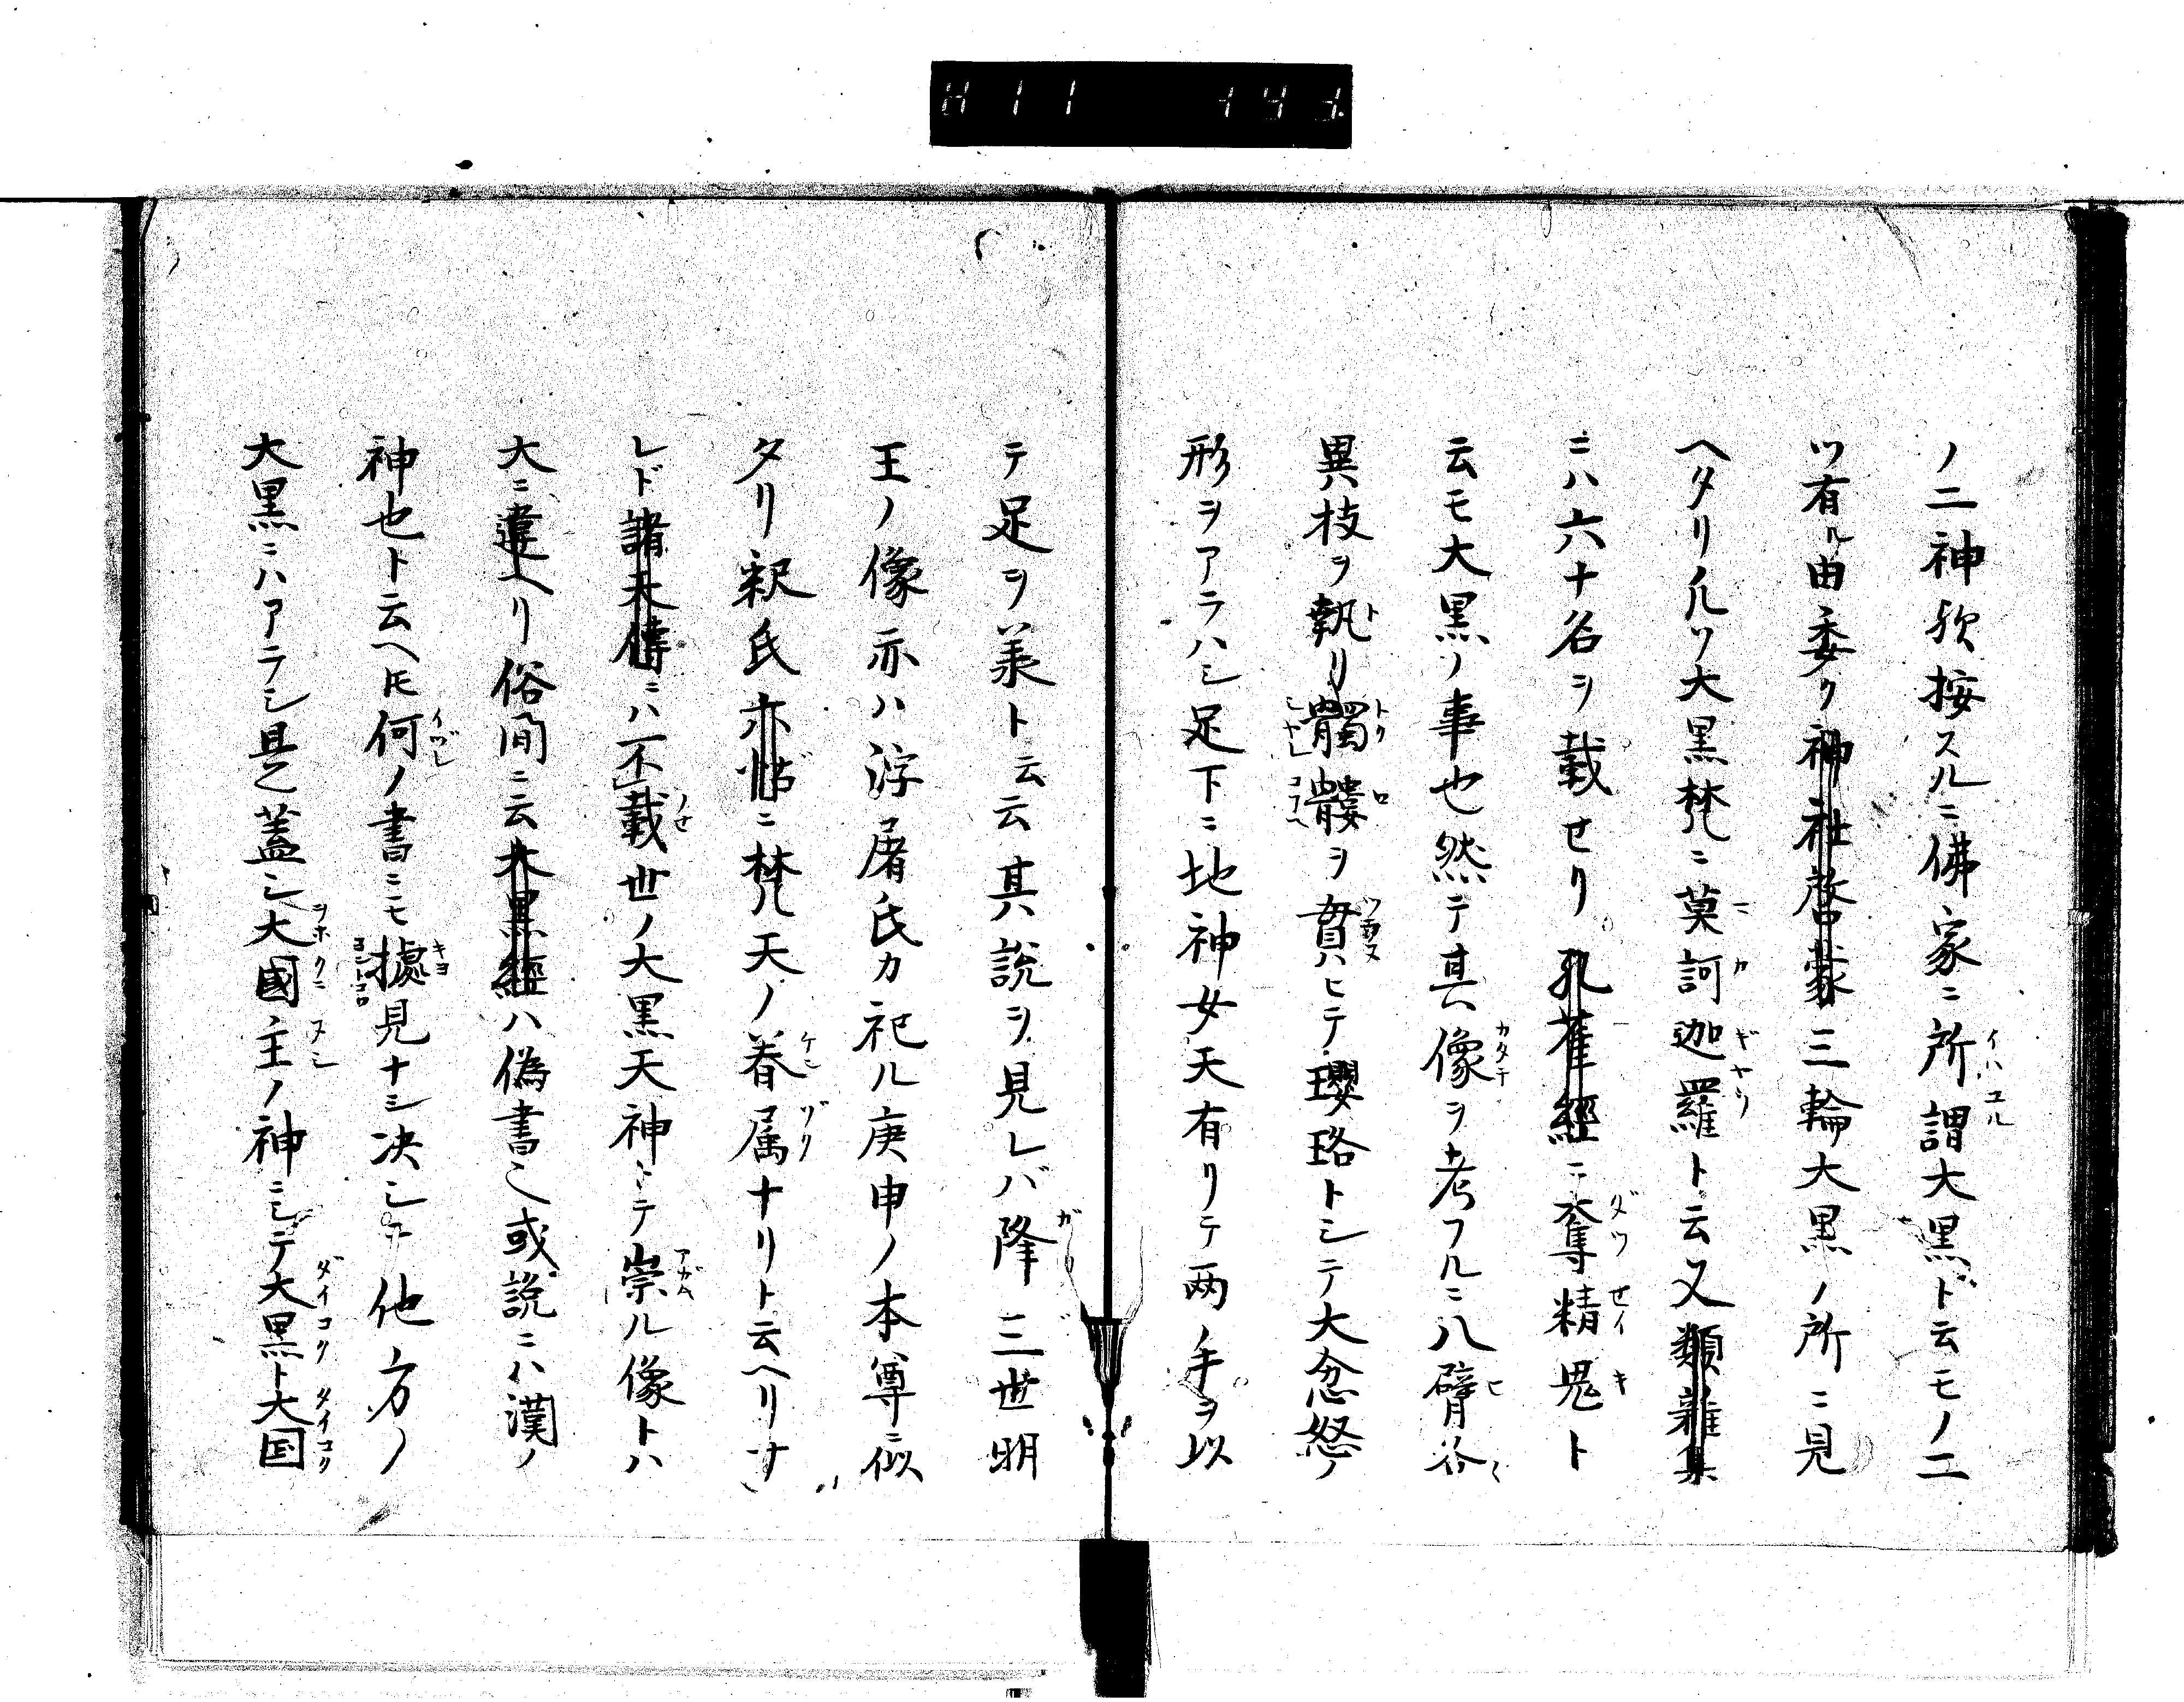 ノ二神歟按スルニ佛家ニ所謂大黒ド云モノ二
ツ有ル由委ク神社啓蒙三輪大黒ノ所ニ見
ヘタリ凡ソ大黒梵ニ莫訶迦羅ト云又類雜集
ニハ六十名ヲ載セリ孔雀經ニ奪精鬼ト
云モ大黒ノ事也然テ其像ヲ考フルニ八臂各
異枝ヲ執リ髑髏ヲ貫ヒテ瓔珞トシテ大忿怒ノ
形ヲアラハシ足下ニ地神女天有リテ两ノ手ヲ以
テ足ヲ美ト云云其説ヲ見レバ降三世明
王ノ像亦ハ浮屠氏カ祀ル庚申ノ本尊ニ似
タリ釈氏亦帖ニ梵天ノ眷属ナリト云ヘリサ
レド諸天傳ニハ不載世ノ大黒天神ミテ崇ル像トハ
大ニ違ヘリ俗間ニ云大黒經ハ偽書也或説ニハ漢ノ
神也ト云ヘ𪜈何ノ書ニモ據見ナシ决シテ他方ノ
大黒ニハアラシ是蓋シ大國主ノ神ニシテ大黒ト大国